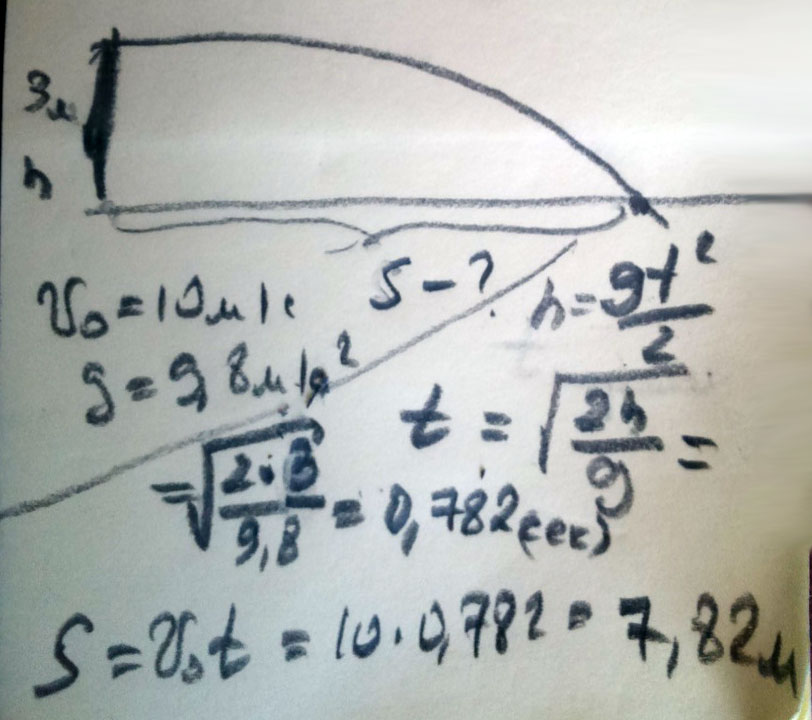 3м
h
S - ?
υ₀ = 10 м/с
g = 9,8 м/с²
h = gt²/2
t = √(2h/g) =
= √(2·3/9,8) = 0,782 (сек)
S = υ₀t = 10 · 0,782 = 7,82 м